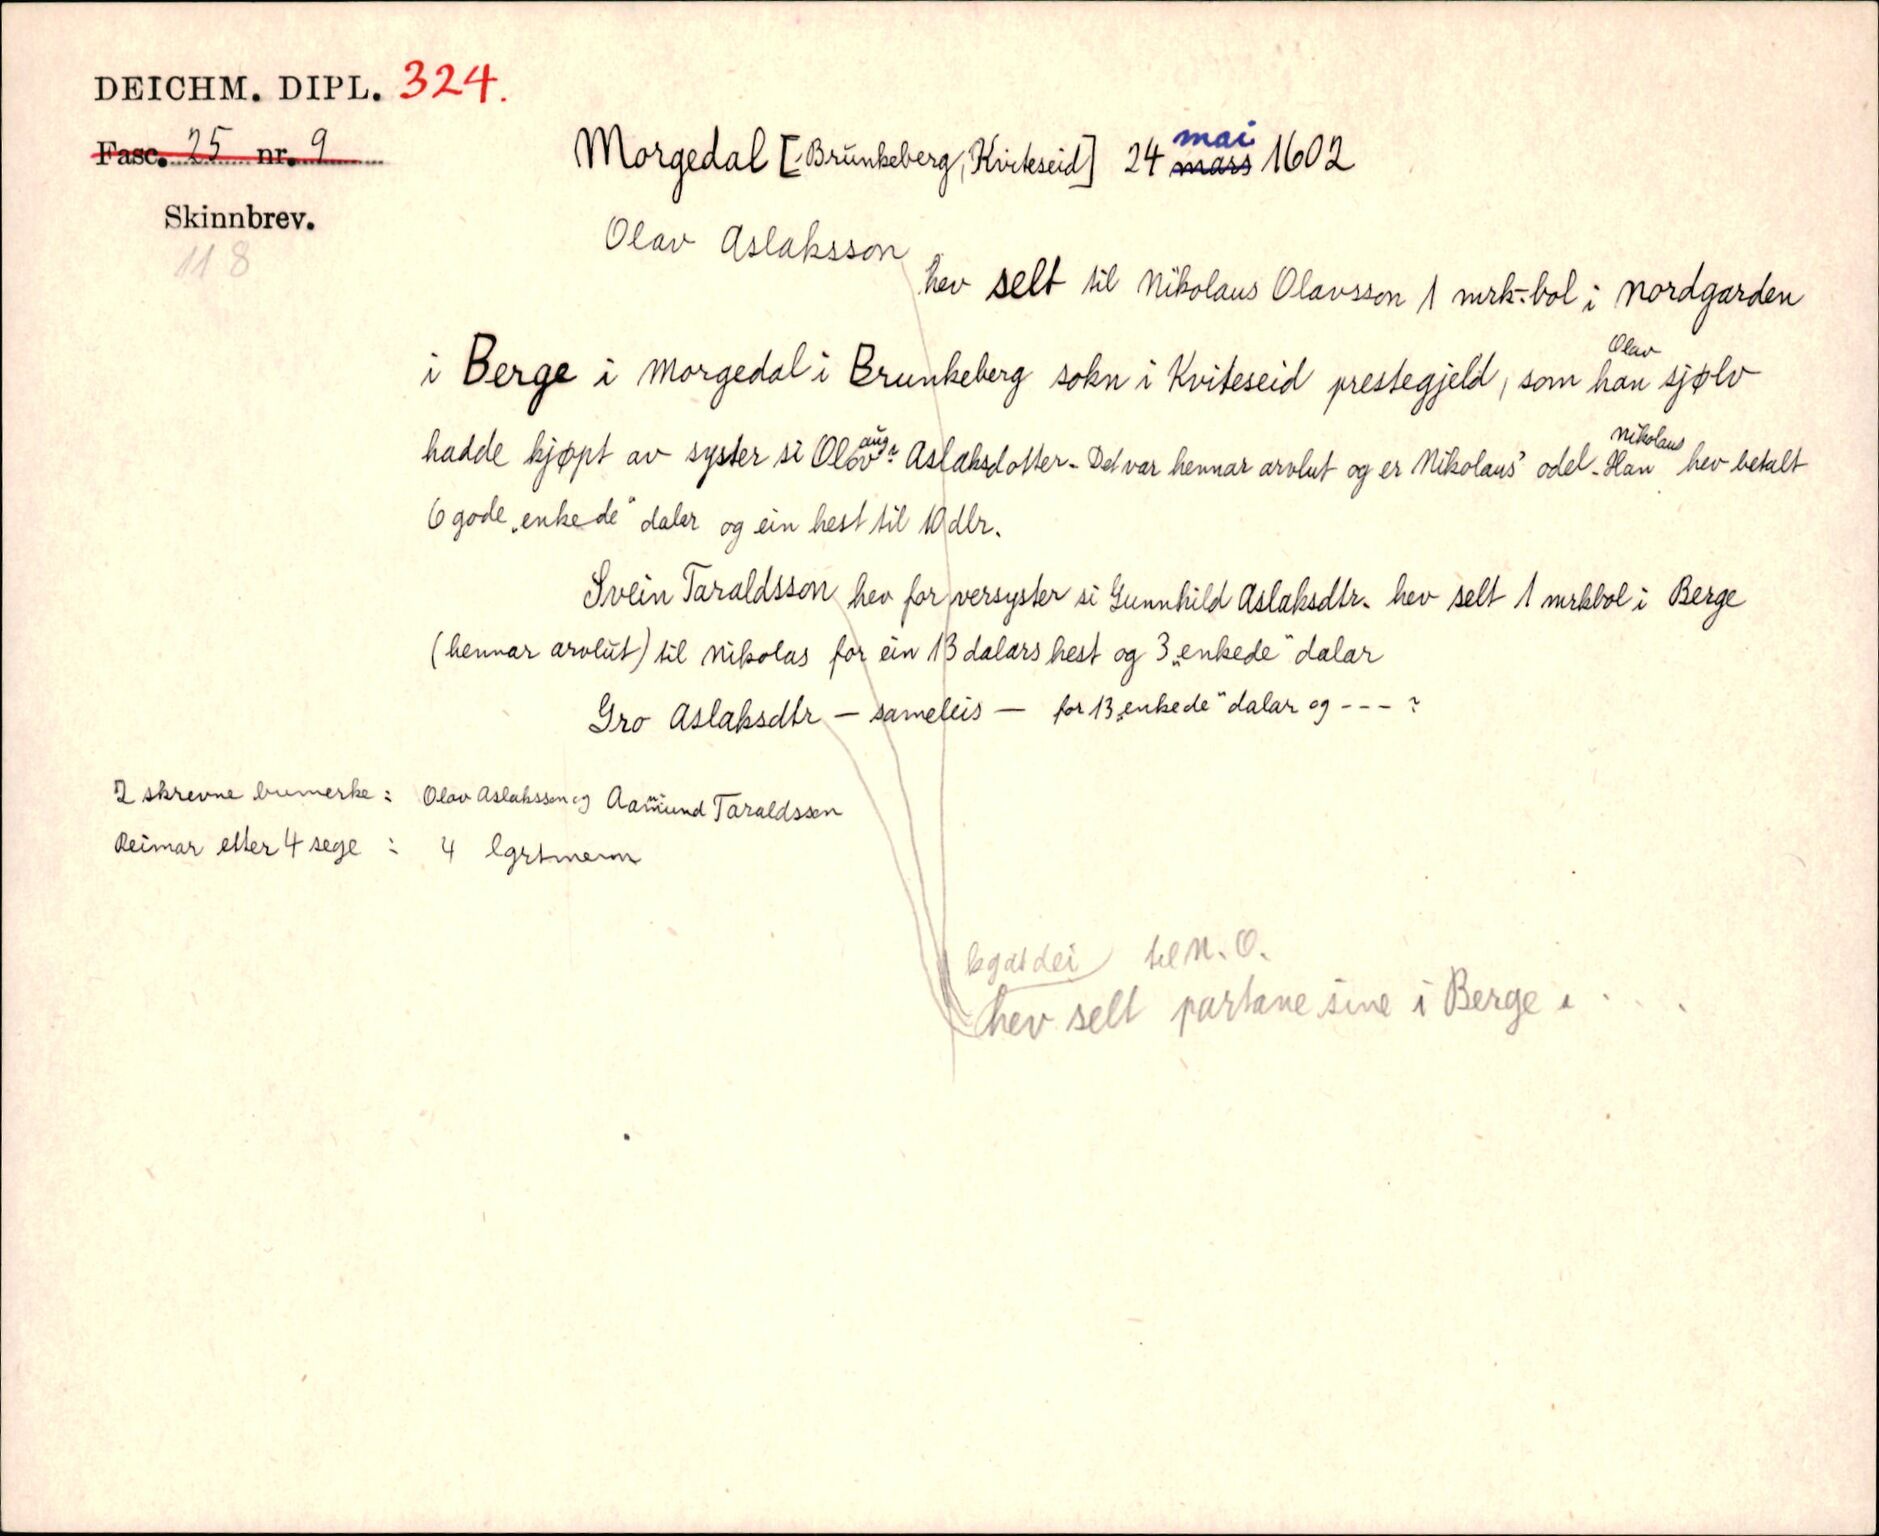 DEICHM. DIPL. 324.
Fasc. 25 nr. 9
Skinnbrev.
118
Morgedal [Brunkeberg, Kviteseid] 24 mars mai 1602
Olav Aslaksson
hev selt til Nikolaus Olavsson 1 mrk-bol i nordgarden
i Berge i Morgedal i Brunkeberg sokn i Kviteseid prestegjeld, som han Olav sjølv
hadde kjøpt av syster si Olov aug? Aslaksdotter - Det var hennar arvlut og er Nikolaus' odel - Han Nikolaus hev betalt
6 gode „enkede" daler og ein hest til 10 dlr.
Svein Taraldsson hev for versyster si Gunnhild Aslaksdtr. hev selt 1 mrkbol i Berge
(hennar arvlut) til Nikolas for ein 13 dalars hest og 3 „enkede" dalar
Gro Aslaksdtr — sameleis — for 13 „enkede" dalar og --- ?
2 skrevne bumerke : Olav Aslaksson og Aamund Taraldsson
Reimar etter 4 sege : 4 lgrtmenn
til N. O.
hev selt partane sine i Berge i . . . .